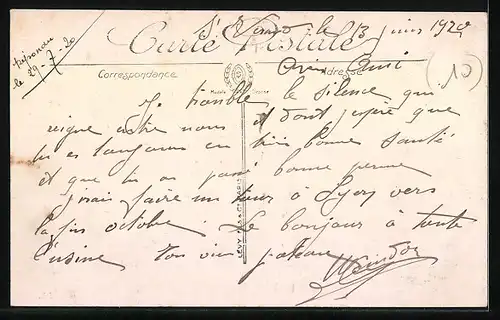 St Vincent le 13 juin 1920
répondu
le 29-7-20
Carte Postale
Correspondance
Adresse
Cher Ami
10
Je trouble le silence qui
règne entre nous et dont j'espère que
tu es toujours en très bonne santé
et que tu as passé bonne
j'irais faire un tour à Lyon vers
la fin octobre. Le bonjour à toute
l'usine ton vieux